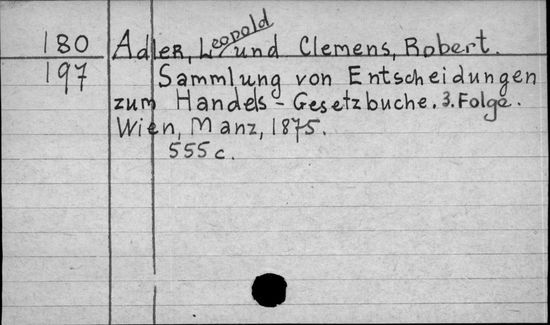 180 Adler, Leopold und Clemens, Robert.
197 Sammlung von Entscheidungen
zum Handels-Gesetzbuche. 3. Folge.
Wien, Manz, 1875.
555 c.